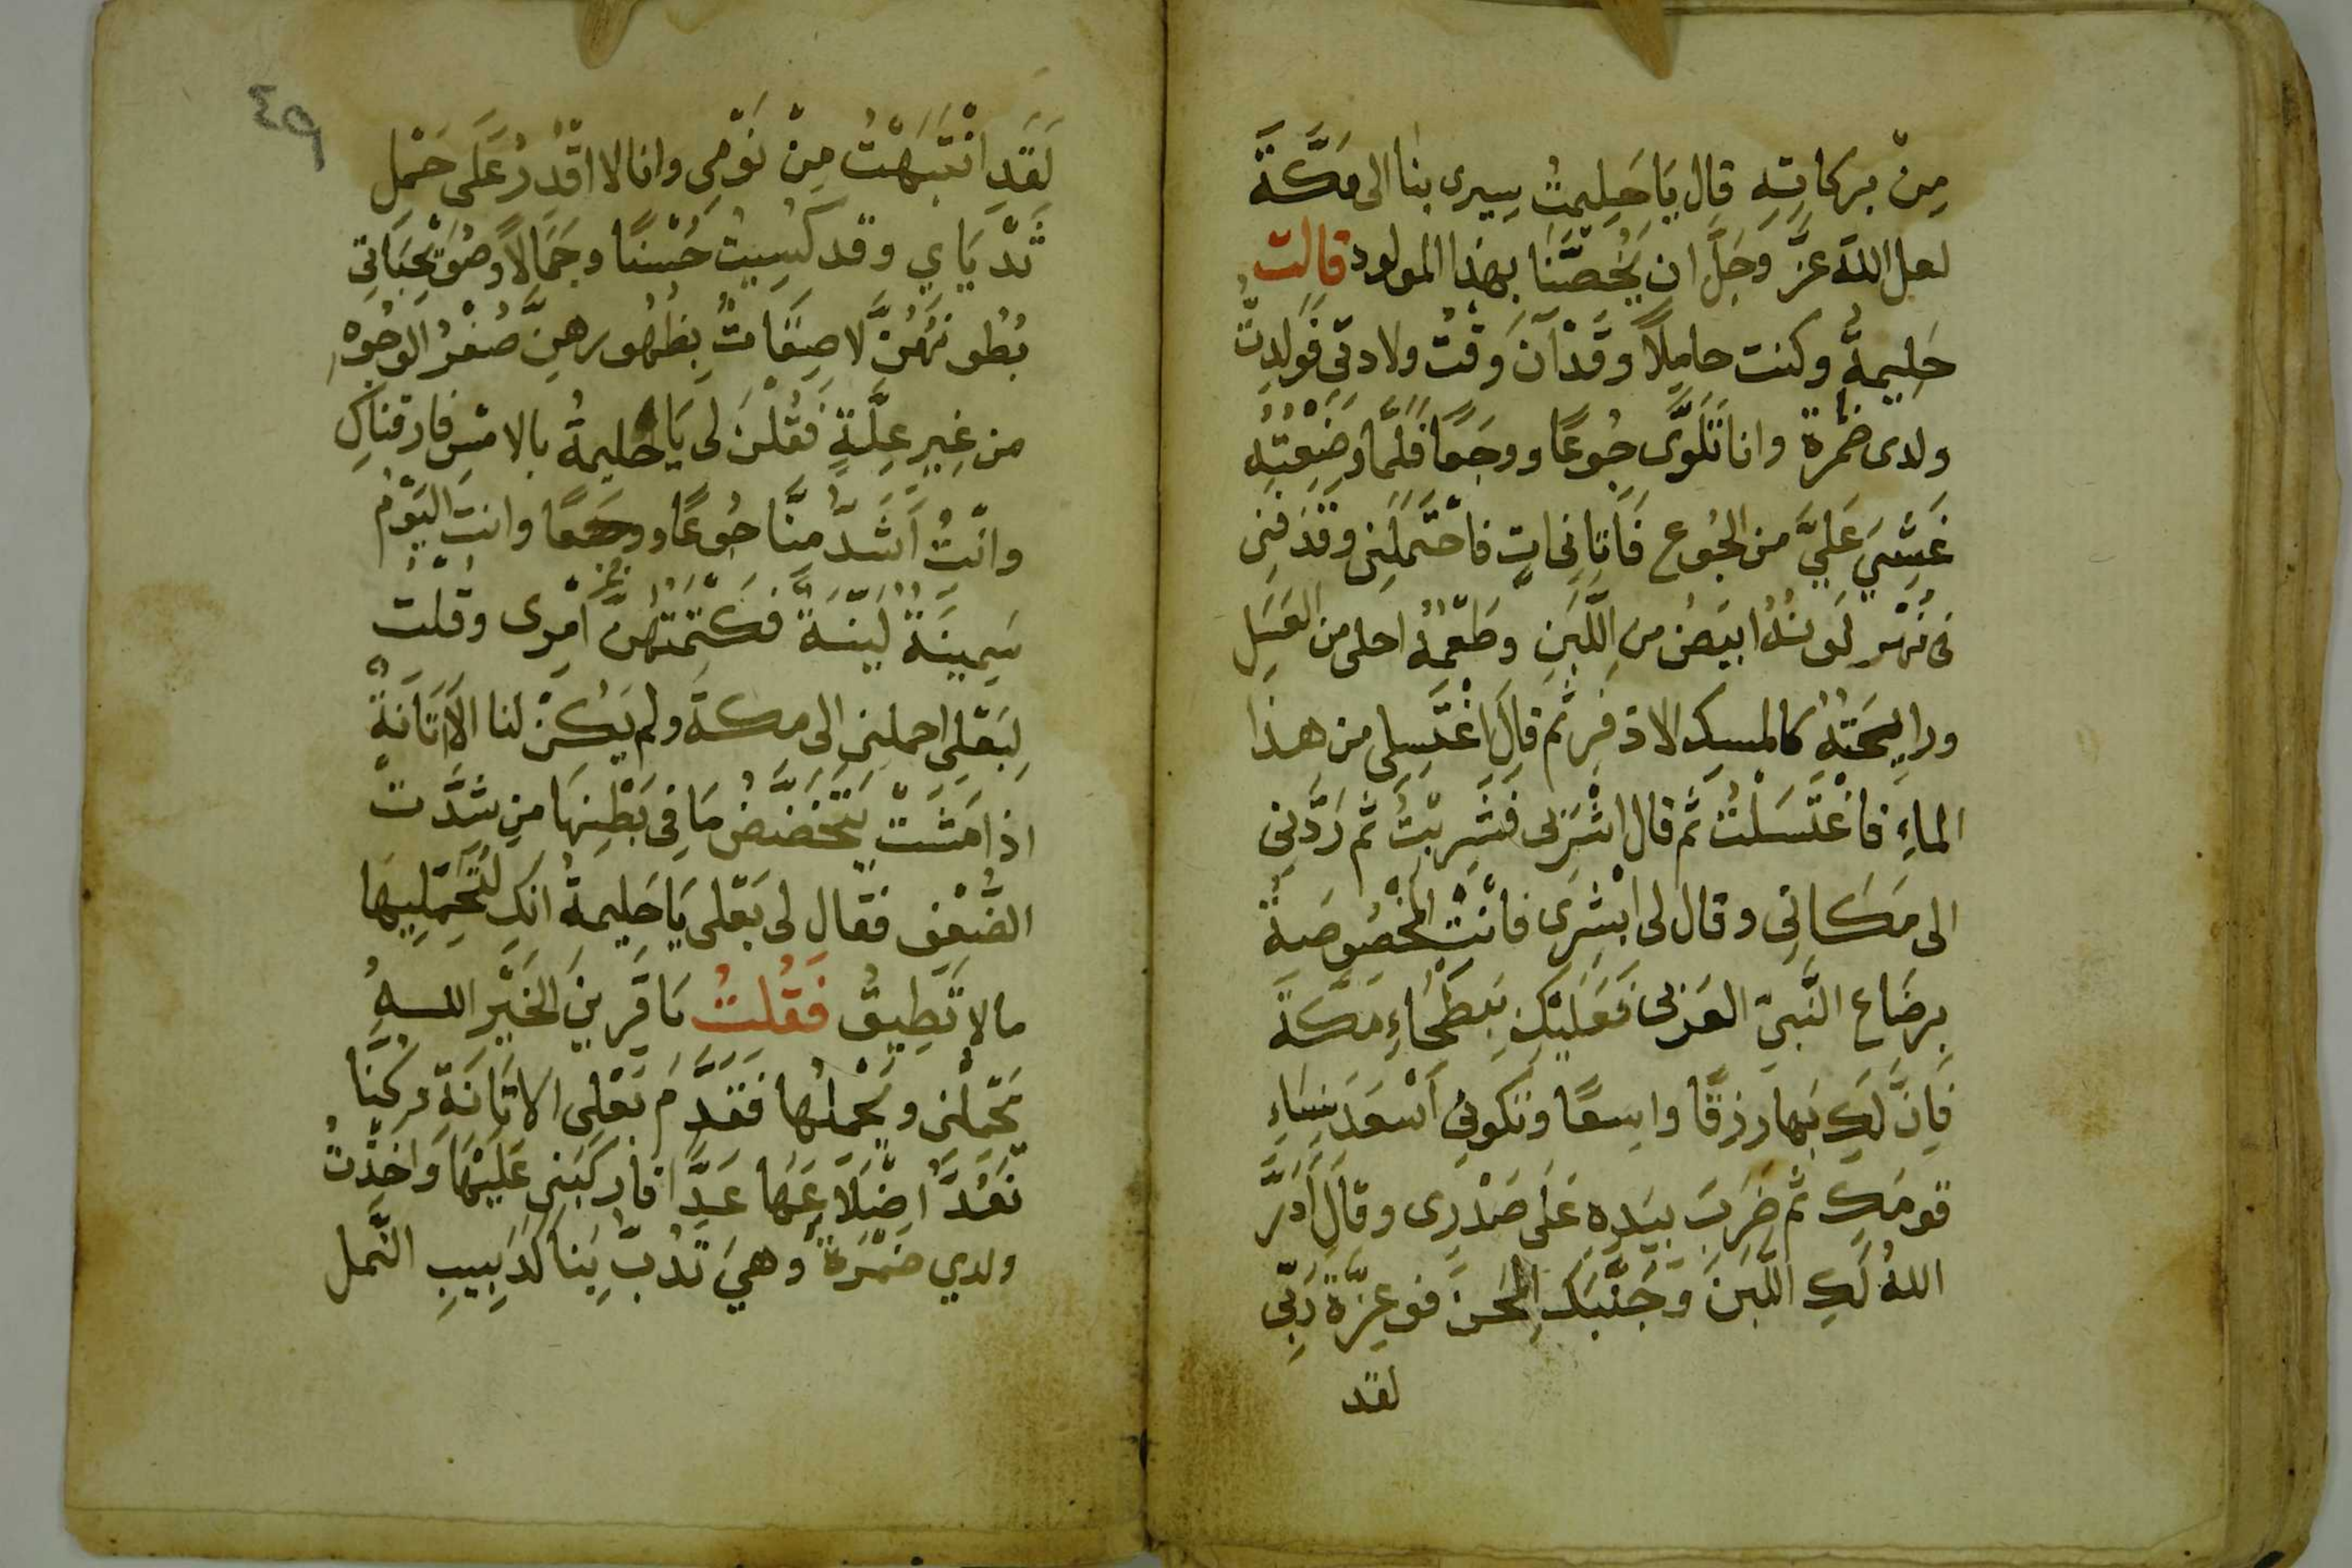 مِنْ بركاتِهِ قال يَا حَلِيمَتُ سِيرى بنا الى مَكَّةَ
لعل اللهَ عَزَّ وَجَلَّ ان يَخُصَّنَا بِهٰذا المولود قالت
حَلِيمةُ وكنت حامِلاً وقَدْ آنَ وَقْتُ ولادتى فَوَلدتُّ
ولدى ضمرة وانا نَتَلَوَّى جُوعًا ووجَعًا فَلَمَّا وضَعْتُهُ
غَشِىَ عَلَيَّ من الجُوعِ فَأتَانِى اتٍ فاحْتَمَلَنِى وقَذَفَنِى
فى نَهْرٍ لَوْنُهُ ابيَضُ مِن اللَّبَنِ وطَعْمُهُ احلى من العَسَلِ
ورايِحَتُهُ كالمسك الاذفَرِ ثم قالَ اغْتَسِلِى من هذا
الماءِ فاغْتَسَلْتُ ثم قال اشْرَبِى فَشَرِبْتُ ثم رَدَّنِى
الى مَكَانِى وقال لى ابْشِرِى فانْتِ المَخْصُوصَةُ
بِرضَاعِ النَّبِيّ العَرَبى فَعَلَيْكِ بِبَطْحَاءِ مَكَّةَ
فَاِنَّ لَكِ بِهَا رزقًا واسِعًا وتكونى اَسْعَدَ نِسَاءِ
قومَكِ ثم ضَرَبَ بِيَدِهِ عَلَى صَدْرِى وقالَ اَدَرَّ
اللهُ لَكِ اللَّبَنَ وَجَنَّبَكِ المِحَنَ فوعِزَّةِ رَبِّى
لقد
لَقَدِ انْتَبَهْتُ مِنْ نَوْمِى وانا لا اقْدُرُ عَلَى حَمْلِ
ثَدْيَاي وقد كُسِيتُ حُسْنًا وجَمَالاً وصُوَيْحِبَاتِى
بُطُونَهُنَّ لاصِقَاتُ بِظُهورِهِنَّ صُفْرُ الوجُوْهِ
من غِيرِ عِلَّةٍ فَقُلْنَ لى يَا حَليمةُ بالامْسِ فارقناكِ
وانْتِ اَشَدُّ مِنَّا جُوعًا ووجَعًا وانتِ اليَوْمُ
سَمِينَةً لَيِّنَةً فَكَتَمْتُهُنَّ اَمْرِى وقُلْتُ
لِبَعْلِى احملنِى الى مكةَ ولم يَكُنْ لنا الَّا اَتَانَةٌ
اذا مَشَتْ يَتَخَضَّضُ مَا فِى بَطْنِهَا مِن شِدَّتْ
الضَّعْفِ فقال لى بَعْلى يَا حَلِيمةُ انكِ لتُحَمِّلِيهَا
مالا تَطِيقُ فَقُلْتُ يَا قَرِينَ الخَيْرِ اللهُ
يَحْمِلْنِى ويَحْمِلُهَا فَقَدَّمَ بَعْلِى الاتَانَةِ وكنَّا
نَعُدُّ اضْلَاعَهَا عَدًّا فأركبنى عَلَيْهَا وَاخَذْتُ
ولدي ضَمْرَةَ وهِيَ تَدُبُّ بِنَا كَدَبِيبِ النَّمل
٤٩